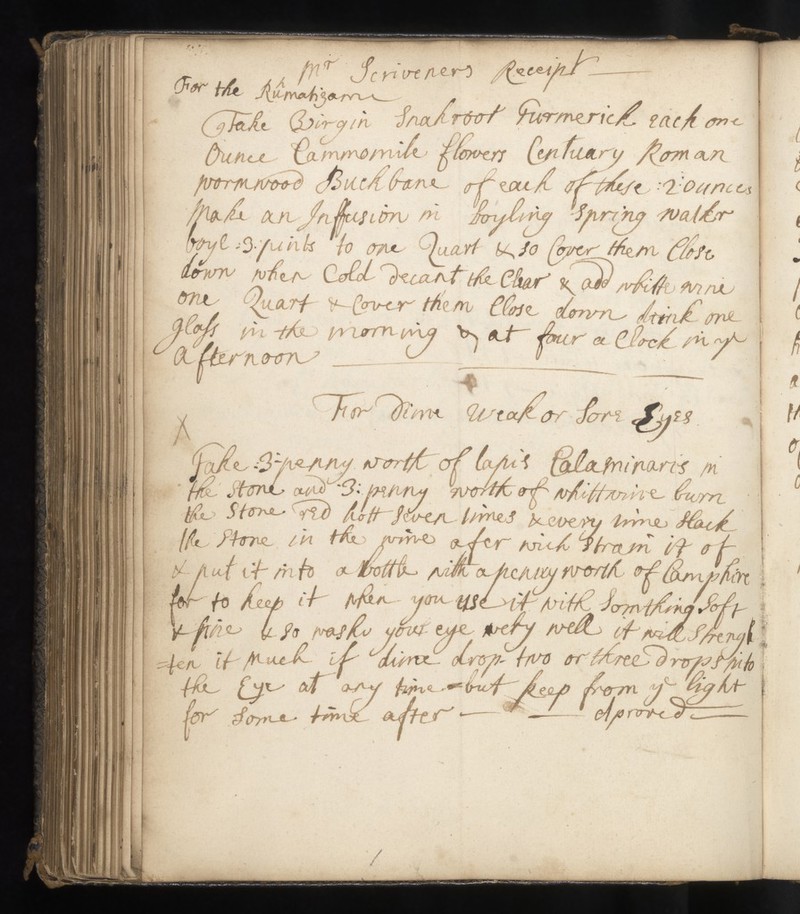 Mr Scriveners Receipt
For the Rumatizam
Take Virgin Snakroot Turmerick each one
Ounce Cammomile flowers Centuary Roman
wormwood Buckbane of each of these :2: ounces
Make an Infusion in boyling Spring watter
boyl :3: pints to one Quart & so Cover them Close
down when Cold decant the Clear & add whitte wine
one Quart & Cover them Close down drink one
glass in the morning & at four a Clock in ye
afternoon
For Dime Weak or Sore Eyes
X
Take :3: penny worth of lapis Calaminaris in
the Stone and :3: penny worth of whittwine burn
the Stone red hott Seven times & every time Slack
the Stone in the wine afer wich Strain it of
& put it into a bottle with a penny worth of Camphire
for to keep it when you use it with Somthing Soft
& fine & so washe your eye wery well it will Strengh
=ten it much if dime drop two or three drops into
the Eye at any time = but keep from ye light
for Some time after aproved